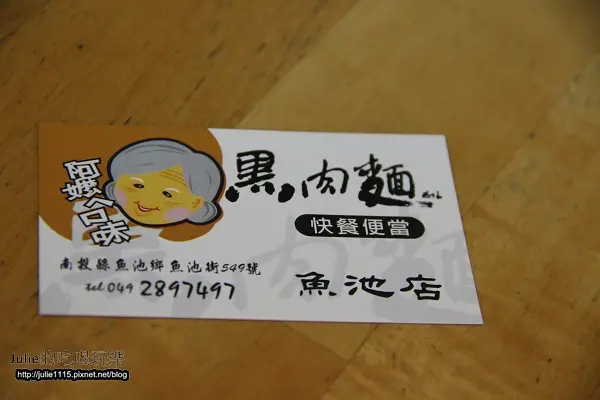 阿嬤ㄟ口味
黑肉麵
快餐便當
南投縣魚池鄉魚池街549號
tel 049 2897497
魚池店
Julie的吃喝玩樂
http://julie1115.pixnet.net/blog